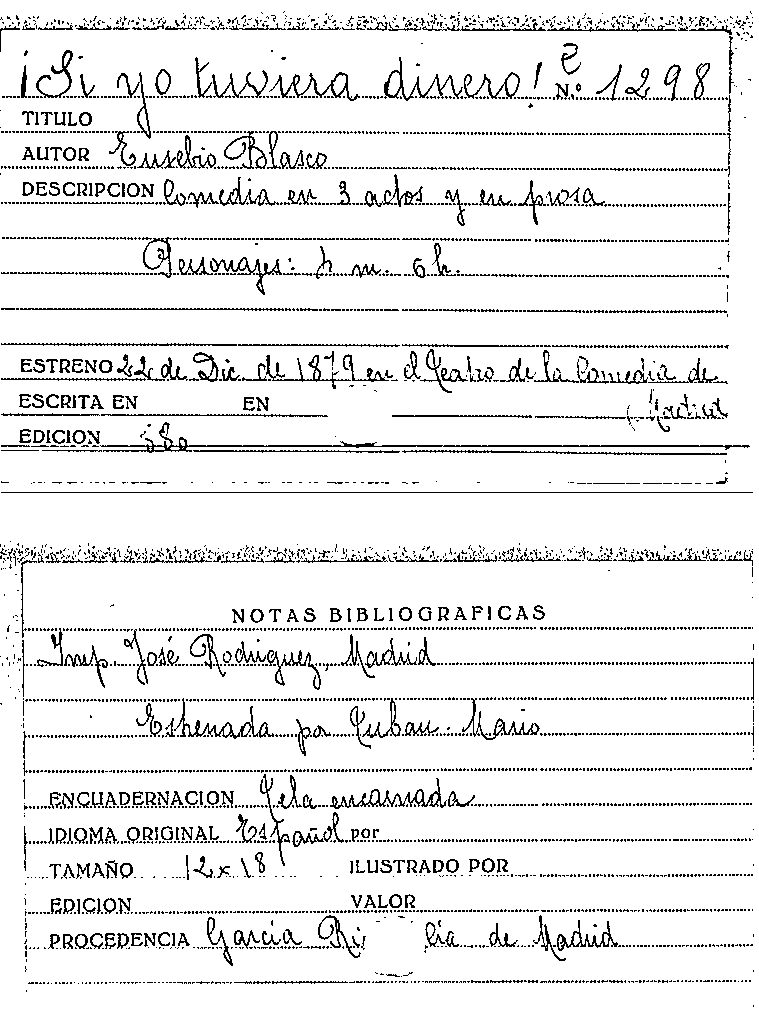 ¡Si yo tuviera dinero! Nº 1298
TITULO
AUTOR Eusebio Blasco
DESCRIPCION Comedia en 3 actos y en prosa
Personajes: m. 6 h.
ESTRENO 22 de Dic. de 1879 en el Teatro de la Comedia de
ESCRITA EN EN Madrid
EDICION 880
NOTAS BIBLIOGRAFICAS
Imp. José Rodríguez, Madrid
Estrenada por Tubau-Mario
ENCUADERNACION Tela encarnada
IDIOMA ORIGINAL Español por
TAMAÑO 12 x 18 ILUSTRADO POR
EDICION VALOR
PROCEDENCIA García de Madrid